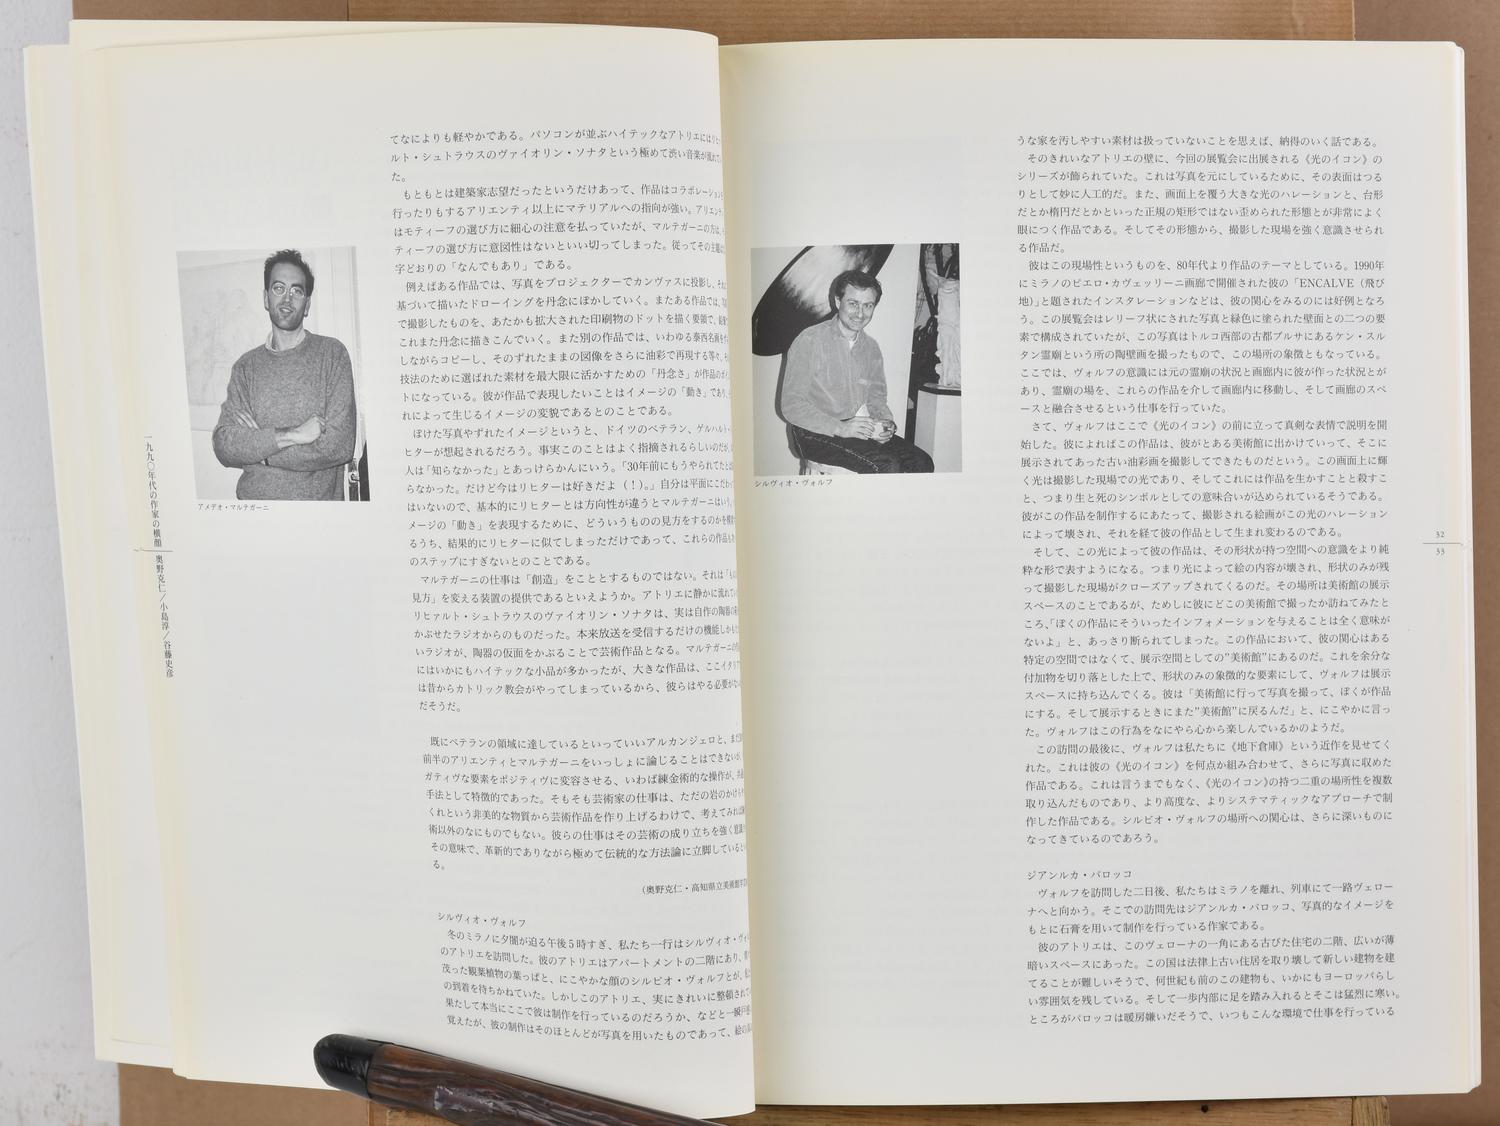 てなによりも軽やかである。パソコンが並ぶハイテックなアトリエには
ルト・シュトラウスのヴァイオリン・ソナタという極めて渋い音楽が流れ
た。
もともとは建築家志望だったというだけあって、作品はコラボレーション
行ったりもするアリエンティ以上にマテリアルへの指向が強い。アリエン
はモティーフの選び方に細心の注意を払っていたが、マルテガーニの方は、
ティーフの選び方に意図性はないといい切ってしまった。従ってその主題は
字どおりの「なんでもあり」である。
例えばある作品では、写真をプロジェクターでカンヴァスに投影し、それ
基づいて描いたドローイングを丹念にぼかしていく。またある作品では、
で撮影したものを、あたかも拡大された印刷物のドットを描く要領で、
これまた丹念に描きこんでいく。また別の作品では、いわゆる泰西名画を
しながらコピーし、そのずれたままの図像をさらに油彩で再現する等々、
技法のために選ばれた素材を最大限に活かすための「丹念さ」が作品の
トになっている。彼が作品で表現したいことはイメージの「動き」であり、
れによって生じるイメージの変貌であるとのことである。
ぼけた写真やずれたイメージというと、ドイツのベテラン、ゲルハルト・
ヒターが想起されるだろう。事実このことはよく指摘されるらしいのだが、
人は「知らなかった」とあっけらかんにいう。「30年前にもうやられてた
らなかった。だけど今はリヒターは好きだよ（！）。」自分は平面にこだわ
はいないので、基本的にリヒターとは方向性が違うとマルテガーニはいう。
メージの「動き」を表現するために、どういうものの見方をするのかを
るうち、結果的にリヒターに似てしまっただけであって、これらの作品も
のステップにすぎないとのことである。
マルテガーニの仕事は「創造」をこととするものではない。それは「もの
見方」を変える装置の提供であるといえようか。アトリエに静かに流れて
リヒァルト・シュトラウスのヴァイオリン・ソナタは、実は自作の陶器の
かぶせたラジオからのものだった。本来放送を受信するだけの機能しかも
いラジオが、陶器の仮面をかぶることで芸術作品となる。マルテガーニの
にはいかにもハイテックな小品が多かったが、大きな作品は、ここイタリア
は昔からカトリック教会がやってしまっているから、彼らはやる必要がな
だそうだ。
既にベテランの領域に達しているといっていいアルカンジェロと、まだ
前半のアリエンティとマルテガーニをいっしょに論じることはできないが、
ガティヴな要素をポジティヴに変容させる、いわば練金術的な操作が、
手法として特徴的であった。そもそも芸術家の仕事は、ただの岩のかけら
くれという非美的な物質から芸術作品を作り上げるわけで、考えてみれば
術以外のなにものでもない。彼らの仕事はその芸術の成り立ちを強く
その意味で、革新的でありながら極めて伝統的な方法論に立脚している
る。
（奥野克仁・高知県立美術館
シルヴィオ・ヴォルフ
冬のミラノに夕闇が迫る午後5時すぎ、私たち一行はシルヴィオ・ヴォ
のアトリエを訪問した。彼のアトリエはアパートメントの二階にあり、
茂った観葉植物の葉っぱと、にこやかな顔のシルビオ・ヴォルフとが、
の到着を待ちかねていた。しかしこのアトリエ、実にきれいに整頓されて
果たして本当にここで彼は制作を行っているのだろうか、などと一瞬
覚えたが、彼の制作はそのほとんどが写真を用いたものであって、絵の
アメデオ・マルテガーニ
一九九〇年代の作家の横顔
奥野克仁／小島淳／谷藤史彦
シルヴィオ・ヴォルフ
うな家を汚しやすい素材は扱っていないことを思えば、納得のいく話である。
そのきれいなアトリエの壁に、今回の展覧会に出展される《光のイコン》の
シリーズが飾られていた。これは写真を元にしているために、その表面はつる
りとして妙に人工的だ。また、画面上を覆う大きな光のハレーションと、台形
だとか楕円だとかといった正規の矩形ではない歪められた形態とが非常によく
眼につく作品である。そしてその形態から、撮影した現場を強く意識させられ
る作品だ。
彼はこの現場性というものを、80年代より作品のテーマとしている。1990年
にミラノのピエロ・カヴェッリーニ画廊で開催された彼の「ENCALVE（飛び
地）」と題されたインスタレーションなどは、彼の関心をみるのには好例となろ
う。この展覧会はレリーフ状にされた写真と緑色に塗られた壁面との二つの要
素で構成されていたが、この写真はトルコ西部の古都ブルサにあるケン・スル
タン霊廟という所の陶壁画を撮ったもので、この場所の象徴ともなっている。
ここでは、ヴォルフの意識には元の霊廟の状況と画廊内に彼が作った状況とが
あり、霊廟の場を、これらの作品を介して画廊内に移動し、そして画廊のスペ
ースと融合させるという仕事を行っていた。
さて、ヴォルフはここで《光のイコン》の前に立って真剣な表情で説明を開
始した。彼によればこの作品は、彼がとある美術館に出かけていって、そこに
展示されてあった古い油彩画を撮影してできたものだという。この画面上に輝
く光は撮影した現場での光であり、そしてこれには作品を生かすことと殺すこ
と、つまり生と死のシンボルとしての意味合いが込められているそうである。
彼がこの作品を制作するにあたって、撮影される絵画がこの光のハレーション
によって壊され、それを経て彼の作品として生まれ変わるのである。
そして、この光によって彼の作品は、その形状が持つ空間への意識をより純
粋な形で表すようになる。つまり光によって絵の内容が壊され、形状のみが残
って撮影した現場がクローズアップされてくるのだ。その場所は美術館の展示
スペースのことであるが、ためしに彼にどこの美術館で撮ったか訪ねてみたと
ころ、「ぼくの作品にそういったインフォメーションを与えることは全く意味が
ないよ」と、あっさり断られてしまった。この作品において、彼の関心はある
特定の空間ではなくて、展示空間としての”美術館”にあるのだ。これを余分な
付加物を切り落とした上で、形状のみの象徴的な要素にして、ヴォルフは展示
スペースに持ち込んでくる。彼は「美術館に行って写真を撮って、ぼくが作品
にする。そして展示するときにまた”美術館”に戻るんだ」と、にこやかに言っ
た。ヴォルフはこの行為をなにやら心から楽しんでいるかのようだ。
この訪問の最後に、ヴォルフは私たちに《地下倉庫》という近作を見せてく
れた。これは彼の《光のイコン》を何点か組み合わせて、さらに写真に収めた
作品である。これは言うまでもなく、《光のイコン》の持つ二重の場所性を複数
取り込んだものであり、より高度な、よりシステマティックなアプローチで制
作した作品である。シルビオ・ヴォルフの場所への関心は、さらに深いものに
なってきているのであろう。
ジアンルカ・バロッコ
ヴォルフを訪問した二日後、私たちはミラノを離れ、列車にて一路ヴェロー
ナへと向かう。そこでの訪問先はジアンルカ・バロッコ、写真的なイメージを
もとに石膏を用いて制作を行っている作家である。
彼のアトリエは、このヴェローナの一角にある古びた住宅の二階、広いが薄
暗いスペースにあった。この国は法律上古い住居を取り壊して新しい建物を建
てることが難しいそうで、何世紀も前のこの建物も、いかにもヨーロッパらし
い雰囲気を残している。そして一歩内部に足を踏み入れるとそこは猛烈に寒い。
ところがバロッコは暖房嫌いだそうで、いつもこんな環境で仕事を行っている
32
33